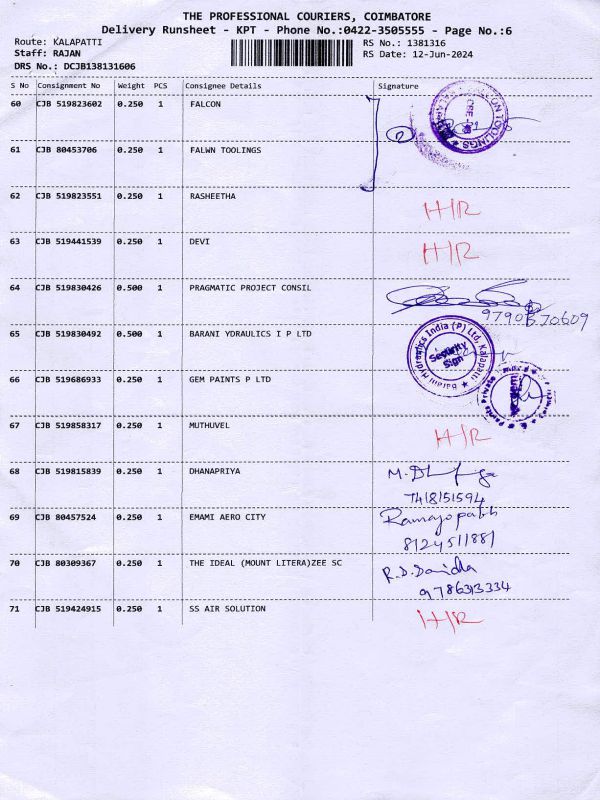 THE PROFESSIONAL COURIERS, COIMBATORE
Delivery Runsheet - KPT - Phone No.:0422-3505555 - Page No.:6
Route: KALAPATTI RS No.: 1381316
Staff: RAJAN RS Date: 12-Jun-2024
DRS No.: DCJB138131606
S No Consignment No Weight PCS Consignee Details Signature
60 CJB 519823602 0.250 1 FALCON
2
61 CJB 80453706 0.250 1 FALWN TOOLINGS
62 CJB 519823551 0.250 1 RASHEETHA H/R
63 CJB 519441539 0.250 1 DEVI H/R
64 CJB 519830426 0.500 1 PRAGMATIC PROJECT CONSIL
65 CJB 519830492 0.500 1 BARANI YDRAULICS I P LTD Barani Hydraulics India (P) Ltd, Kalapatti Security Sign
66 CJB 519686933 0.250 1 GEM PAINTS P LTD
67 CJB 519858317 0.250 1 MUTHUVEL H/R
68 CJB 519815839 0.250 1 DHANAPRIYA
7418151594
69 CJB 80457524 0.250 1 EMAMI AERO CITY
8124511881
70 CJB 80309367 0.250 1 THE IDEAL (MOUNT LITERA)ZEE SC
9786313334
71 CJB 519424915 0.250 1 SS AIR SOLUTION H/R